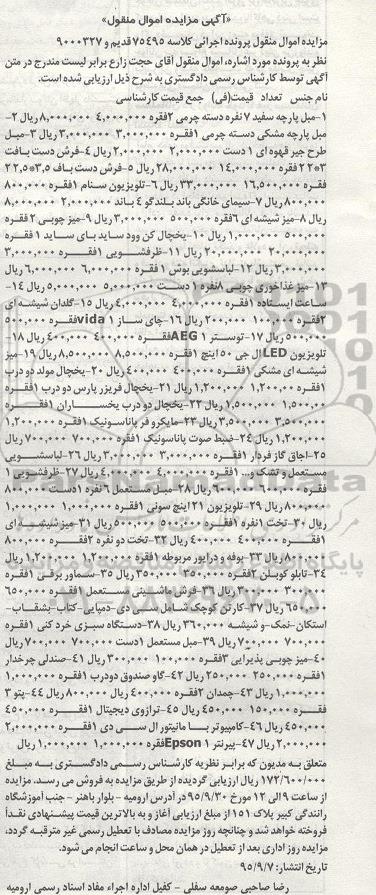 «آگهی مزایده اموال منقول»
مزایده اموال منقول پرونده اجرائی کلاسه ۷۵۴۹۵ قدیم و ۹۰۰۰۳۲۷
نظر به پرونده مورد اشاره، اموال منقول آقای حجت زارع برابر لیست مندرج در متن
آگهی توسط کارشناس رسمی دادگستری به شرح ذیل ارزیابی شده است.
نام جنس تعداد قیمت(فی) جمع قیمت کارشناسی
۱-مبل پارچه سفید ۷ نفره دسته چرمی ۲فقره ۴,۰۰۰,۰۰۰ ۸,۰۰۰,۰۰۰ ریال ۲-
مبل پارچه مشکی دسته چرمی ۱فقره ۳,۰۰۰,۰۰۰ ۳,۰۰۰,۰۰۰ ریال ۳-مبل
طرح جیر قهوه ای ۱ دست ۲,۰۰۰,۰۰۰ ۲,۰۰۰,۰۰۰ ریال ۴-فرش دست بافت
۳*۲ ۲ فقره ۱۴,۰۰۰,۰۰۰ ۲۸,۰۰۰,۰۰۰ ریال ۵-فرش دست باف ۳,۵*۲,۵ ۲
فقره ۱۶,۵۰۰,۰۰۰ ۳۳,۰۰۰,۰۰۰ ریال ۶-تلویزیون سنام ۱فقره ۸۰۰,۰۰۰
۸۰۰,۰۰۰ ریال ۷-سیمای خانگی باند بلندگو ۴ باند ۲,۰۰۰,۰۰۰ ۸,۰۰۰,۰۰۰
ریال ۸-میز شیشه ای ۶فقره ۵۰۰,۰۰۰ ۳,۰۰۰,۰۰۰ ریال ۹-میز چوبی ۲ فقره
۵۰۰,۰۰۰ ۱,۰۰۰,۰۰۰ ریال ۱۰-یخچال کن وود ساید بای ساید ۱ فقره
۲۰,۰۰۰,۰۰۰ ۲۰,۰۰۰,۰۰۰ ریال ۱۱-ظرفشویی ۱فقره ۳,۰۰۰,۰۰۰
۳,۰۰۰,۰۰۰ ریال ۱۲-لباسشویی بوش ۱ فقره ۶,۰۰۰,۰۰۰ ۶,۰۰۰,۰۰۰ ریال
۱۳-میز غذاخوری چوبی ۸نفره ۱ دست ۵,۰۰۰,۰۰۰ ۵,۰۰۰,۰۰۰ ریال ۱۴-
ساعت ایستاده ۱ فقره ۴,۰۰۰,۰۰۰ ۴,۰۰۰,۰۰۰ ریال ۱۵-گلدان شیشه ای
۲فقره ۱۰۰,۰۰۰ ۲۰۰,۰۰۰ ریال ۱۶-چای ساز vida ۱فقره ۵۰۰,۰۰۰
۵۰۰,۰۰۰ ریال ۱۷-توستر AEG ۱فقره ۴۰۰,۰۰۰ ۴۰۰,۰۰۰ ریال ۱۸-
تلویزیون LED ال جی ۵۰ اینچ ۱فقره ۸,۵۰۰,۰۰۰ ۸,۵۰۰,۰۰۰ ریال ۱۹-میز
شیشه ای مشکی ۱فقره ۴۰۰,۰۰۰ ۴۰۰,۰۰۰ ریال ۲۰-یخچال مولد دو درب
۱فقره ۱,۲۰۰,۰۰۰ ۱,۲۰۰,۰۰۰ ریال ۲۱-یخچال فریزر پارس دو درب ۱فقره
۱,۵۰۰,۰۰۰ ۱,۵۰۰,۰۰۰ ریال ۲۲-یخچال دو درب یخساران ۱فقره
۳,۵۰۰,۰۰۰ ۳,۵۰۰,۰۰۰ ریال ۲۳-مایکرو فر پاناسونیک ۱فقره ۱,۲۰۰,۰۰۰
۱,۲۰۰,۰۰۰ ریال ۲۴-ضبط صوت پاناسونیک ۱فقره ۷۰۰,۰۰۰ ۷۰۰,۰۰۰ ریال
۲۵-اجاق گاز فردار ۱فقره ۳,۰۰۰,۰۰۰ ۳,۰۰۰,۰۰۰ ریال ۲۶-لباسشویی
مستعمل و تشک و... ۱فقره ۴,۰۰۰,۰۰۰ ۴,۰۰۰,۰۰۰ ریال ۲۷-ظرفشویی ۱
فقره ۶۰۰,۰۰۰ ۶۰۰,۰۰۰ ریال ۲۸-مبل مستعمل ۶ نفره ۱دست ۸۰۰,۰۰۰
۸۰۰,۰۰۰ ریال ۲۹-تلویزیون ۲۱ اینچ سونی ۱فقره ۱,۰۰۰,۰۰۰ ۱,۰۰۰,۰۰۰
ریال ۳۰-تخت ۱نفره ۱فقره ۵۰۰,۰۰۰ ۵۰۰,۰۰۰ ریال ۳۱-میز شیشه ای
۱فقره ۴۰۰,۰۰۰ ۴۰۰,۰۰۰ ریال ۳۲-تخت دو نفره ۲فقره ۸۰۰,۰۰۰
۸۰۰,۰۰۰ ریال ۳۳-بوفه و دراور مربوطه ۱فقره ۱,۲۰۰,۰۰۰ ۱,۲۰۰,۰۰۰ ریال
۳۴-تابلو کوبلن ۲فقره ۳۵۰,۰۰۰ ۳۵۰,۰۰۰ ریال ۳۵-سماور برقی ۱فقره
۳۰۰,۰۰۰ ۳۰۰,۰۰۰ ریال ۳۶-فرش ماشینی مستعمل ۱فقره ۶۵۰,۰۰۰
۶۵۰,۰۰۰ ریال ۳۷-کارتن کوچک شامل سی دی -دمپایی-کتاب-بشقاب-
استکان-نمک-و شیشه ۳۶۰,۰۰۰ ریال ۳۸-دستگاه سبزی خرد کنی ۱فقره
۷۰۰,۰۰۰ ۷۰۰,۰۰۰ ریال ۳۹-مبل مستعمل ۱دست ۷۰۰,۰۰۰ ۷۰۰,۰۰۰ ریال
۴۰-میز چوبی پذیرایی ۳فقره ۱۰۰,۰۰۰ ۳۰۰,۰۰۰ ریال ۴۱-صندلی چرخدار
۱فقره ۲۵۰,۰۰۰ ۲۵۰,۰۰۰ ریال ۴۲-گاو صندوق دودرب ۱فقره ۱,۰۰۰,۰۰۰
۱,۰۰۰,۰۰۰ ریال ۴۳-چمدان ۲فقره ۴۰۰,۰۰۰ ریال ۸۰۰,۰۰۰ ریال ۴۴-پتو ۳
فقره ۱۵۰,۰۰۰ ۴۵۰,۰۰۰ ریال ۴۵-ترازوی دیجیتال ۱فقره ۴۵۰,۰۰۰
۴۵۰,۰۰۰ ریال ۴۶-کامپیوتر با مانیتور ال سی دی ۱فقره ۲,۰۰۰,۰۰۰
۲,۰۰۰,۰۰۰ ریال ۴۷-پرینتر Epson ۱فقره ۱,۰۰۰,۰۰۰ ۱,۰۰۰,۰۰۰ ریال
متعلق به مدیون که برابر نظریه کارشناس رسمی دادگستری به مبلغ
۱۷۲/۶۰۰/۰۰۰ ریال ارزیابی گردیده از طریق مزایده به فروش می رسد. مزایده
از ساعت ۹ الی ۱۲ مورخ ۹۵/۹/۳۰ در آدرس ارومیه - بلوار باهنر - جنب آموزشگاه
رانندگی کبیر پلاک ۱۵۱ از مبلغ ارزیابی آغاز و به بالاترین قیمت پیشنهادی نقداً
فروخته خواهد شد و چنانچه روز مزایده مصادف با تعطیل رسمی غیر مترقبه گردد،
مزایده روز اداری بعد از تعطیل در همان محل و ساعت انجام می شود.
تاریخ انتشار: ۹۵/۹/۷
رضا صاحبی صومعه سفلی - کفیل اداره اجراء مفاد اسناد رسمی ارومیه